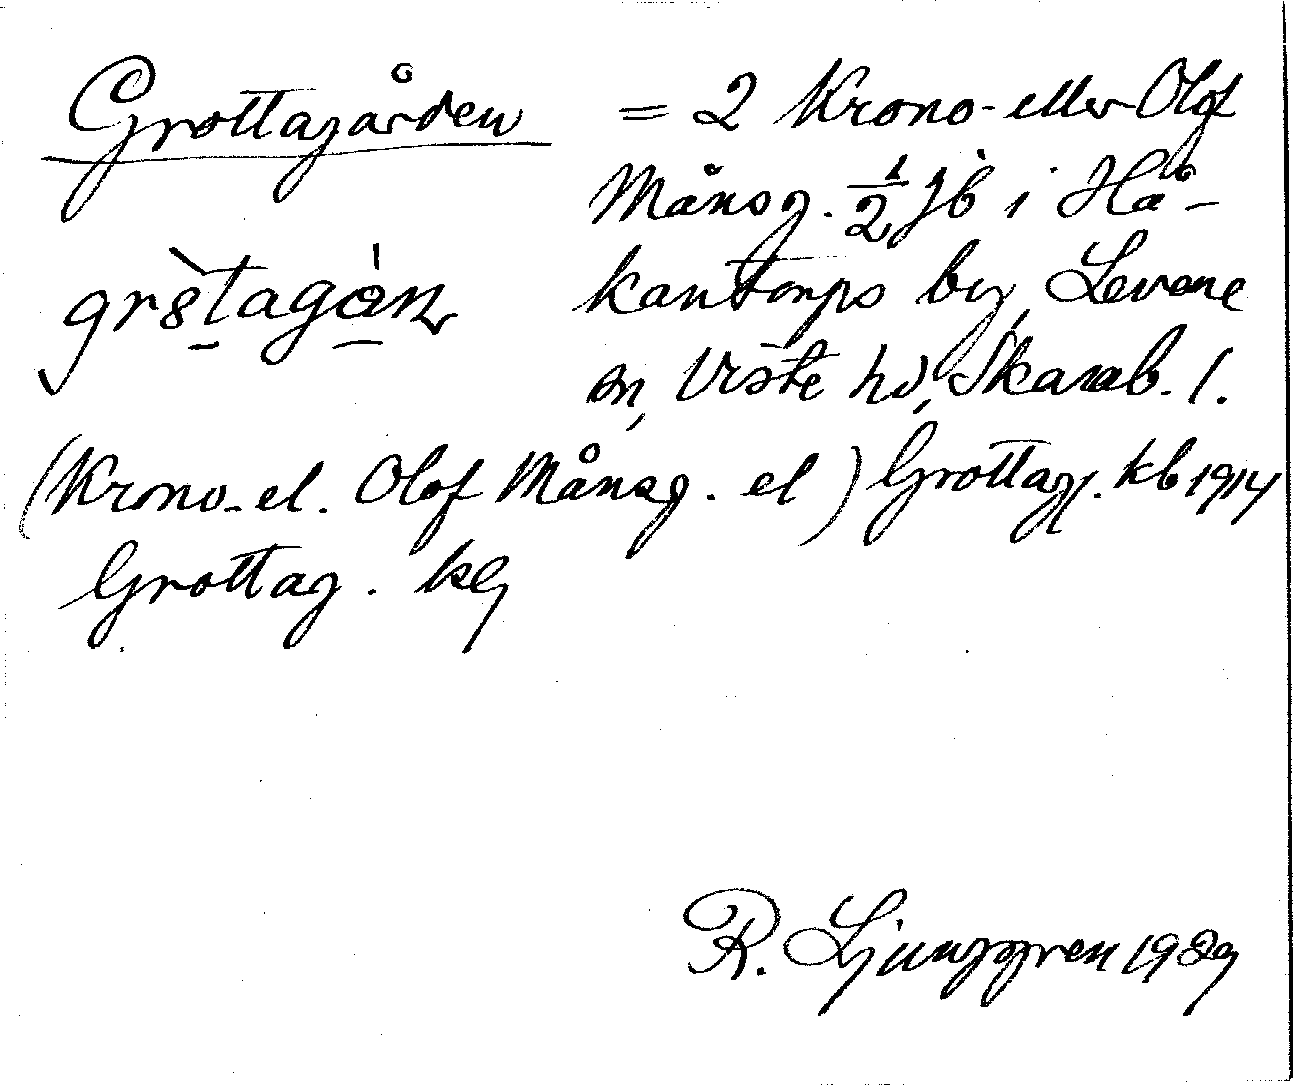 Grottagården = 2 Krono- eller Olof
Månsg. 1/2 jb i Hå-
kantorps by, Levene
sn, Viste hd, Skarab. l.
(Krono- el. Olof Månsg. el) Grottag. kb 1914
Grottag. kg
R. Ljunggren 1929